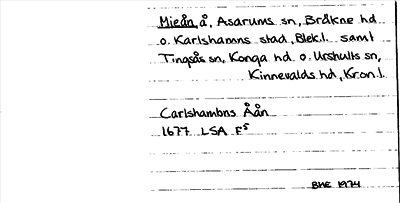 Mieån, å, Asarums sn, Bräkne hd
o. Karlshamns stad, Blek.l. samt
Tingsås sn, Konga hd. o. Urshults sn,
Kinnevalds hd, Kron.l.
Carlshambns Åån
1677 LSA F⁵
BHE 1974